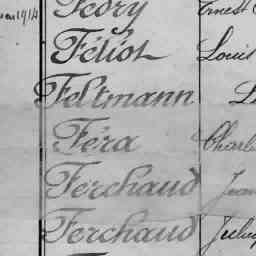 1914 Fédry Ernest
Féliot Louis
Feltmann L
Féra Charl
Ferchaud Jean
Ferchaud